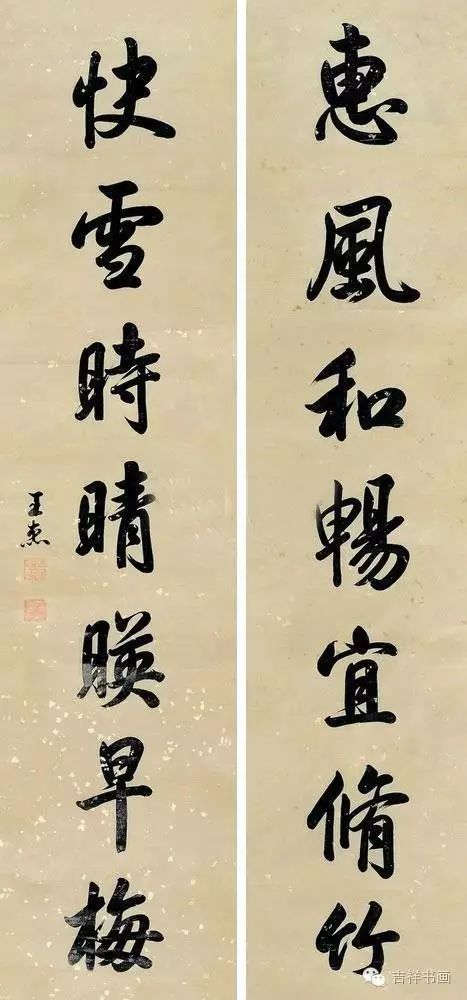 惠風和暢宜脩竹
快雪時晴暎早梅
吉祥书画